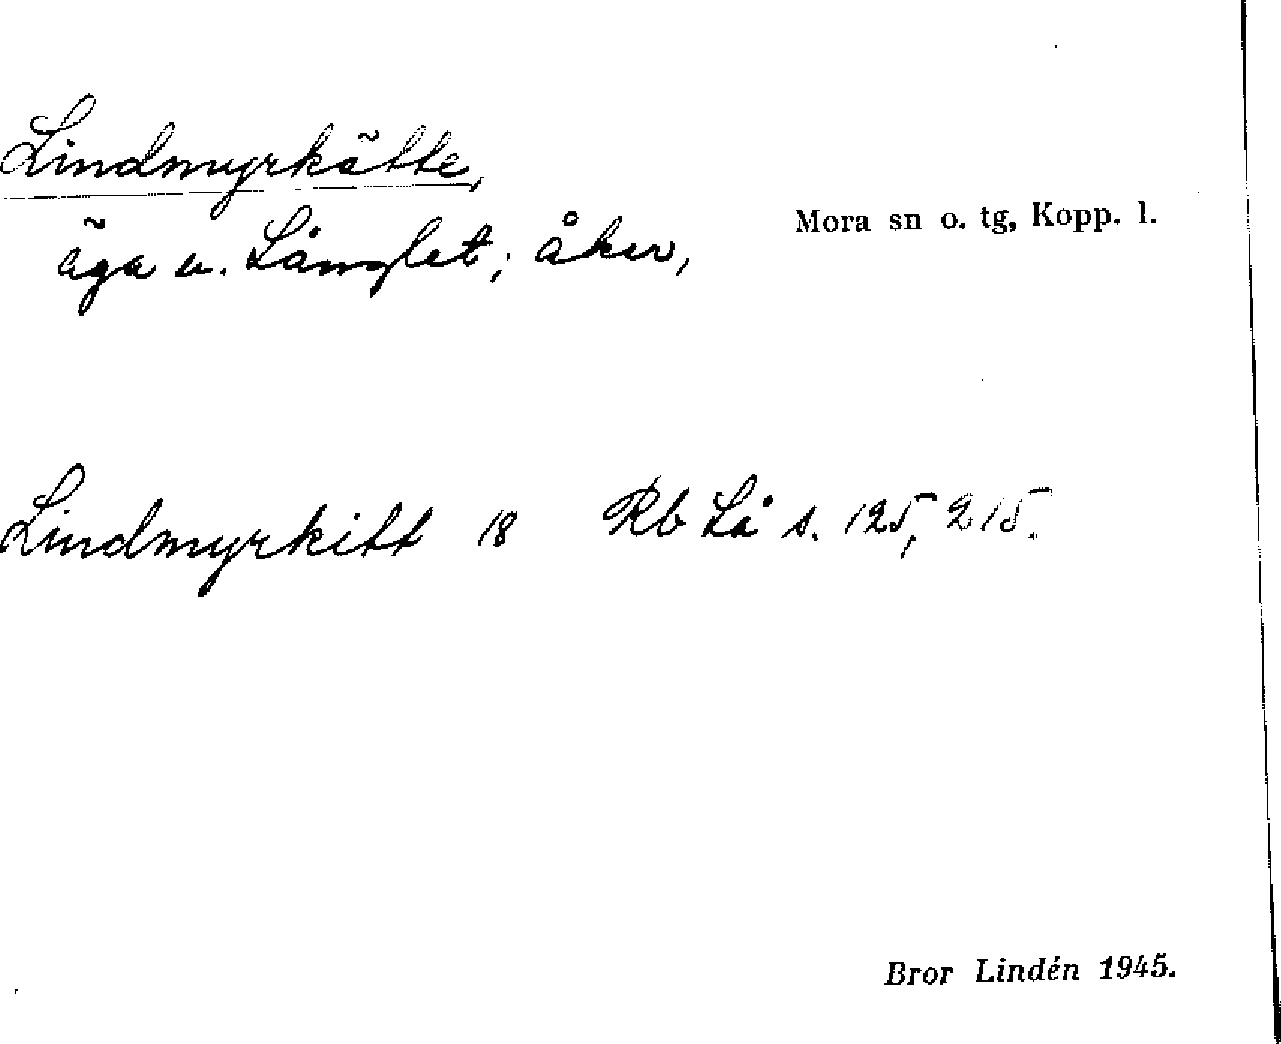 Lindmyrkätte,
äga u. Långlet; åker,
Mora sn o. tg, Kopp. l.
Lindmyrkitt 18 Rb Lå s. 125, 215.
Bror Lindén 1945.